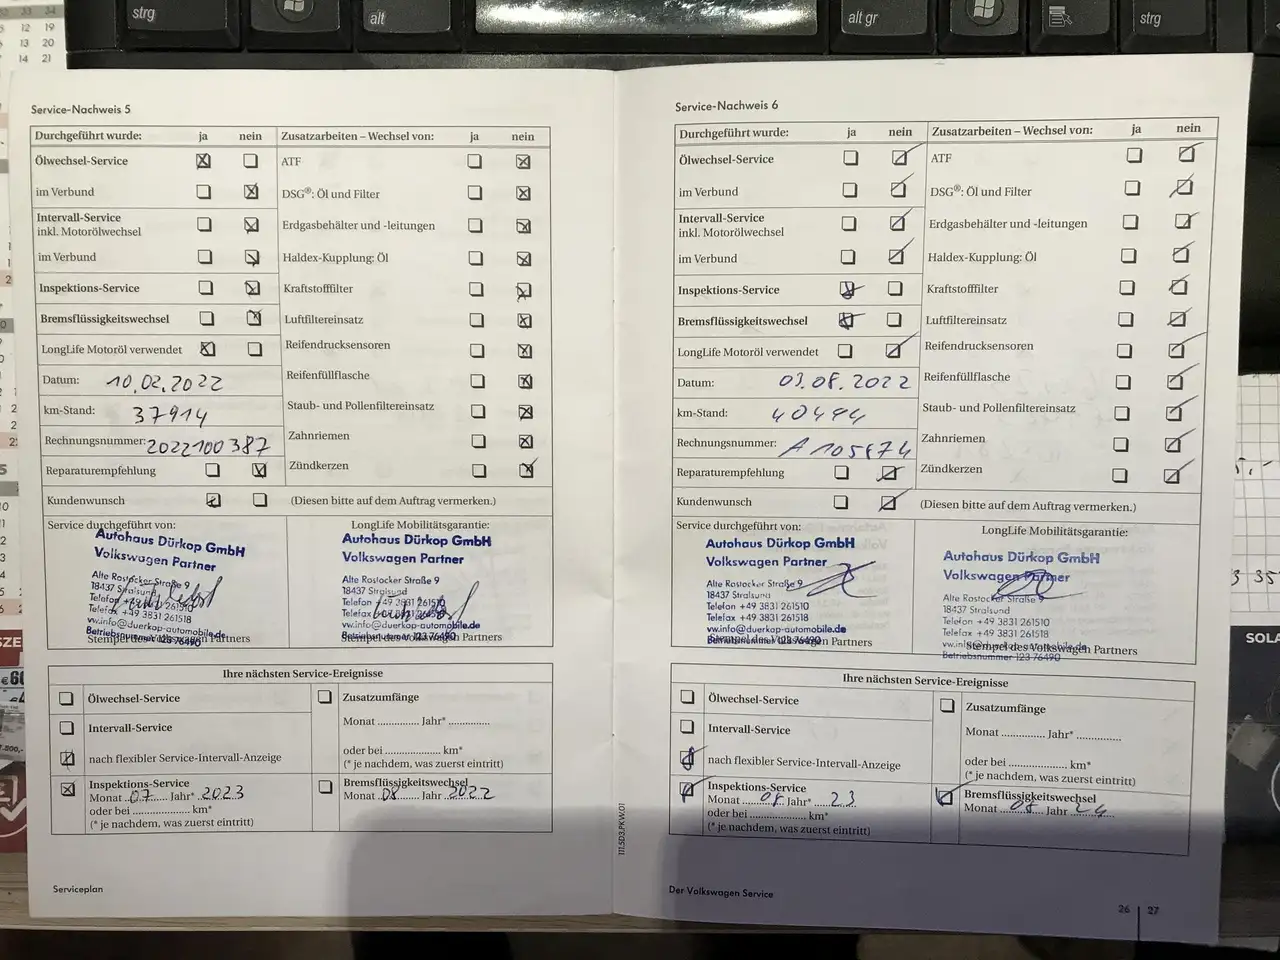 strg
alt
alt gr
strg
Service-Nachweis 5
Durchgeführt wurde: ja nein
Zusatzarbeiten – Wechsel von: ja nein
Ölwechsel-Service
ATF
im Verbund
DSG®: Öl und Filter
Intervall-Service
inkl. Motorölwechsel
Erdgasbehälter und -leitungen
im Verbund
Haldex-Kupplung: Öl
Inspektions-Service
Kraftstofffilter
Bremsflüssigkeitswechsel
Luftfiltereinsatz
LongLife Motoröl verwendet
Reifendrucksensoren
Datum: 10.02.2022
Reifenfüllflasche
km-Stand: 37914
Staub- und Pollenfiltereinsatz
Rechnungsnummer: 2022100387
Zahnriemen
Reparaturempfehlung
Zündkerzen
Kundenwunsch
(Diesen bitte auf dem Auftrag vermerken.)
Service durchgeführt von:
Autohaus Dürkop GmbH
Volkswagen Partner
Alte Rostocker Straße 9
18437 Stralsund
Telefon +49 3831 261510
Telefax +49 3831 261518
vw.info@duerkop-automobile.de
Betriebsnummer 123 76490
Stempel des Volkswagen Partners
LongLife Mobilitätsgarantie:
Autohaus Dürkop GmbH
Volkswagen Partner
Alte Rostocker Straße 9
18437 Stralsund
Telefon +49 3831 261510
Telefax +49 3831 261518
vw.info@duerkop-automobile.de
Betriebsnummer 123 76490
Stempel des Volkswagen Partners
Ihre nächsten Service-Ereignisse
Ölwechsel-Service
Zusatzumfänge
Intervall-Service
Monat .............. Jahr* ..............
nach flexibler Service-Intervall-Anzeige
oder bei .................... km*
(* je nachdem, was zuerst eintritt)
Inspektions-Service
Monat 07 Jahr* 2023
oder bei .................... km*
(* je nachdem, was zuerst eintritt)
Bremsflüssigkeitswechsel
Monat 08 Jahr 2022
Serviceplan
111.5D3.PKW.01
Service-Nachweis 6
Durchgeführt wurde: ja nein
Zusatzarbeiten – Wechsel von: ja nein
Ölwechsel-Service
ATF
im Verbund
DSG®: Öl und Filter
Intervall-Service
inkl. Motorölwechsel
Erdgasbehälter und -leitungen
im Verbund
Haldex-Kupplung: Öl
Inspektions-Service
Kraftstofffilter
Bremsflüssigkeitswechsel
Luftfiltereinsatz
LongLife Motoröl verwendet
Reifendrucksensoren
Datum: 03.08.2022
Reifenfüllflasche
km-Stand:
Staub- und Pollenfiltereinsatz
Rechnungsnummer:
Zahnriemen
Reparaturempfehlung
Zündkerzen
Kundenwunsch
(Diesen bitte auf dem Auftrag vermerken.)
Service durchgeführt von:
Autohaus Dürkop GmbH
Volkswagen Partner
Alte Rostocker Straße 9
18437 Stralsund
Telefon +49 3831 261510
Telefax +49 3831 261518
vw.info@duerkop-automobile.de
Betriebsnummer 123 76490
Stempel des Volkswagen Partners
LongLife Mobilitätsgarantie:
Autohaus Dürkop GmbH
Volkswagen Partner
Alte Rostocker Straße 9
18437 Stralsund
Telefon +49 3831 261510
Telefax +49 3831 261518
Stempel des Volkswagen Partners
Betriebsnummer 123 76490
Ihre nächsten Service-Ereignisse
Ölwechsel-Service
Zusatzumfänge
Intervall-Service
Monat .............. Jahr* ..............
nach flexibler Service-Intervall-Anzeige
oder bei .................... km*
(* je nachdem, was zuerst eintritt)
Inspektions-Service
Monat 08 Jahr* 23
oder bei .................... km*
(* je nachdem, was zuerst eintritt)
Bremsflüssigkeitswechsel
Monat 08 Jahr 24
Der Volkswagen Service
26 | 27